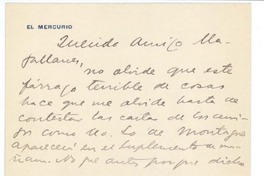 EL MERCURIO
Querido Amigo Ma-
gallanes, no olvide que este
fárrago terrible de cosas
hace que me olvide hasta de
contestar las cartas de los ami-
gos como Ud. Lo de Montagne
aparecerá en el Suplemento de ma-
ñana. No fue antes porque dicho